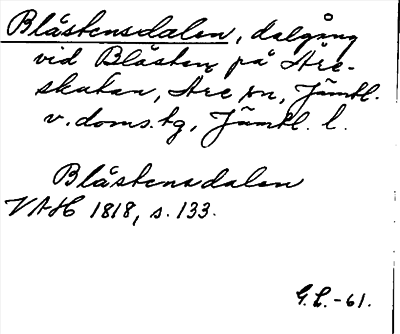 Blåstensdalen, dalgång
vid Blåsten på Åre-
skutan, Åre sn, Jämtl.
v. doms. tg, Jämtl. l.
Blåstensdalen
VAH 1818, s. 133.
G.L. -61.